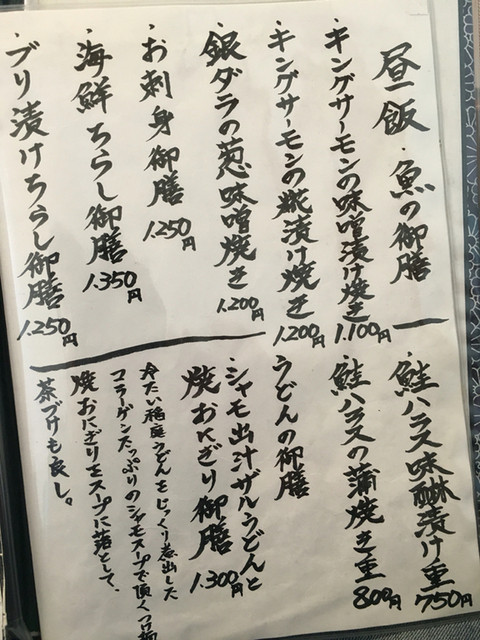 昼飯・魚の御膳
・キングサーモンの味噌漬け焼き 1.100円
・キングサーモンの糀漬け焼き 1.200円
・銀ダラの葱味噌焼き 1.200円
・お刺身御膳 1.250円
・海鮮ちらし御膳 1.350円
・ブリ漬けちらし御膳 1.250円
・鮭ハラス味醂漬け重 750円
・鮭ハラスの蒲焼き重 800円
うどんの御膳
・シャモ出汁ザルうどんと
焼おにぎり御膳 1.300円
冷たい稲庭うどんをじっくり煮出した
コラーゲンたっぷりのシャモスープで頂くつけ麺
焼おにぎりをスープに落として、
茶づけも良し。